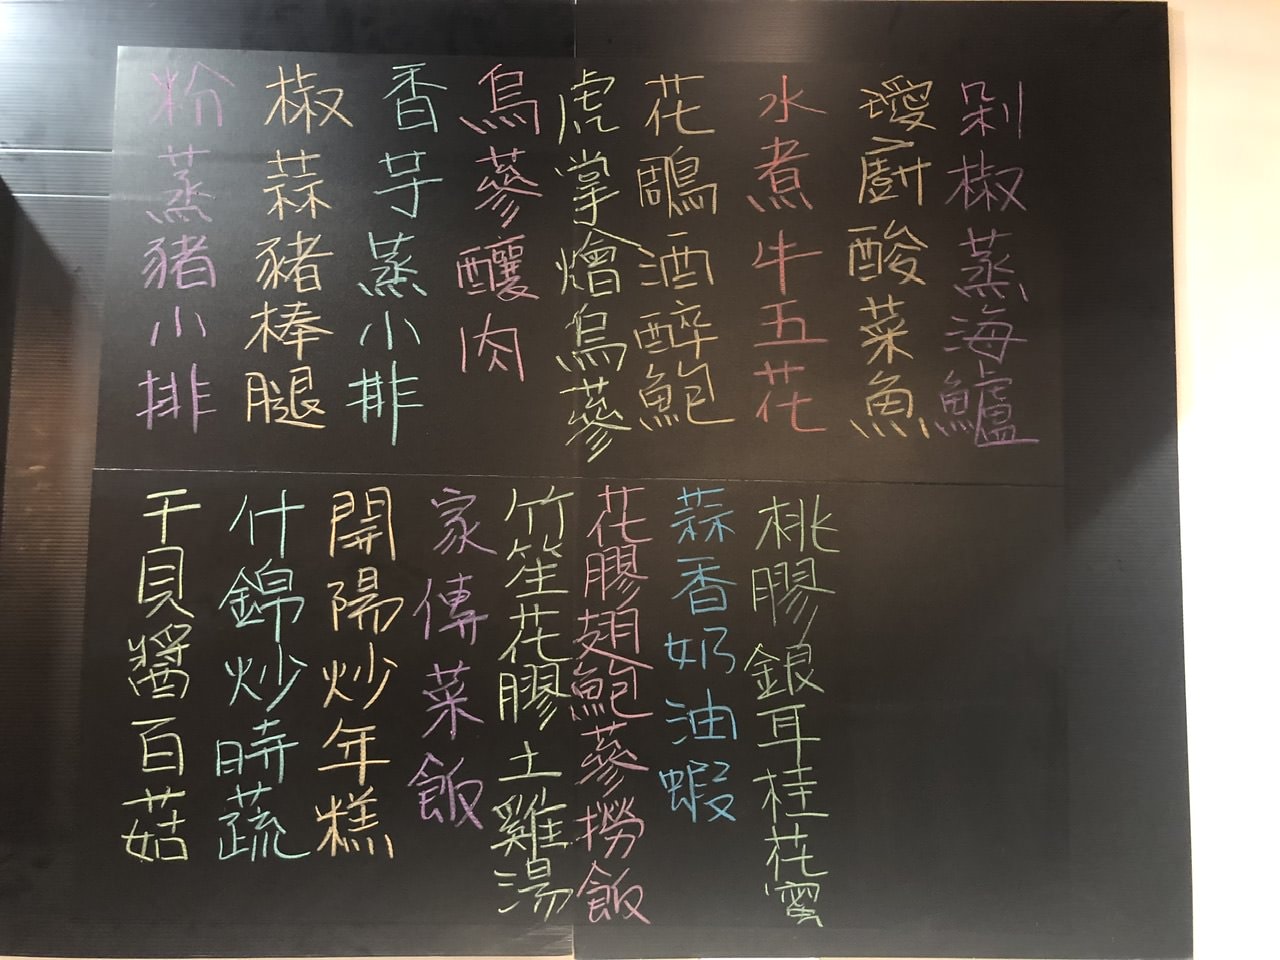 剁椒蒸海鱸
璦廚酸菜魚
水煮牛五花
花鵰酒醉鮑
虎掌燴烏蔘
烏蔘釀肉
香芋蒸小排
椒蒜豬棒腿
粉蒸豬小排
桃膠銀耳桂花蜜
蒜香奶油蝦
花膠翅鮑蔘撈飯
竹笙花膠土雞湯
家傳菜飯
開陽炒年糕
什錦炒時蔬
干貝醬百菇